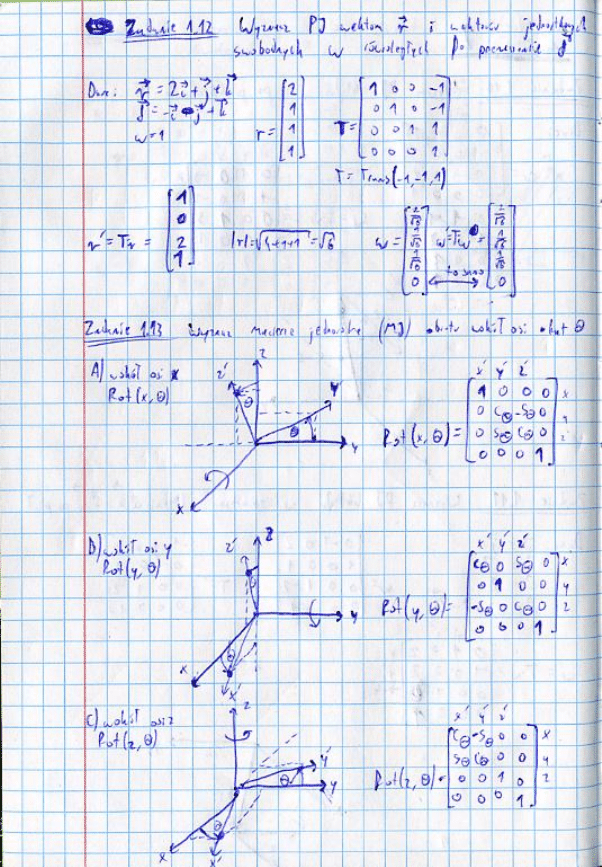 Zadanie 1.12 Wyznacz PJ wektora r⃗ i wektorów jednostkowych
swobodnych w równoległych do po przesunięciu p⃗
Dane: r⃗ = 2i⃗ + j⃗ + k⃗
p⃗ = -i⃗ - j⃗ + k⃗
w=1
r = [2 1 1 1] T = [1 0 0 -1; 0 1 0 -1; 0 0 1 1; 0 0 0 1]
T = Trans(-1,-1,1)
r' = Tr = [1 0 2 1] |r| = √4+1+1 = √6 w = [2/√6 1/√6 1/√6 0] w' = Tw = [2/√6 1/√6 1/√6 0]
to samo
Zadanie 1.13 Wyznacz macierze jednorodne (MJ) obrotu wokół osi o kąt Θ
A) wokół osi x
Rot(x, Θ)
z z' y' y x Θ Θ
x' y' z'
Rot(x, Θ) = [1 0 0 0; 0 CΘ -SΘ 0; 0 SΘ CΘ 0; 0 0 0 1] x y z
B) wokół osi y
Rot(y, Θ)
z z' y x x' Θ
x' y' z'
Rot(y, Θ) = [CΘ 0 SΘ 0; 0 1 0 0; -SΘ 0 CΘ 0; 0 0 0 1] x y z
C) wokół osi z
Rot(z, Θ)
z y' y x x' Θ Θ
x' y' z'
Rot(z, Θ) = [CΘ -SΘ 0 0; SΘ CΘ 0 0; 0 0 1 0; 0 0 0 1] x y z